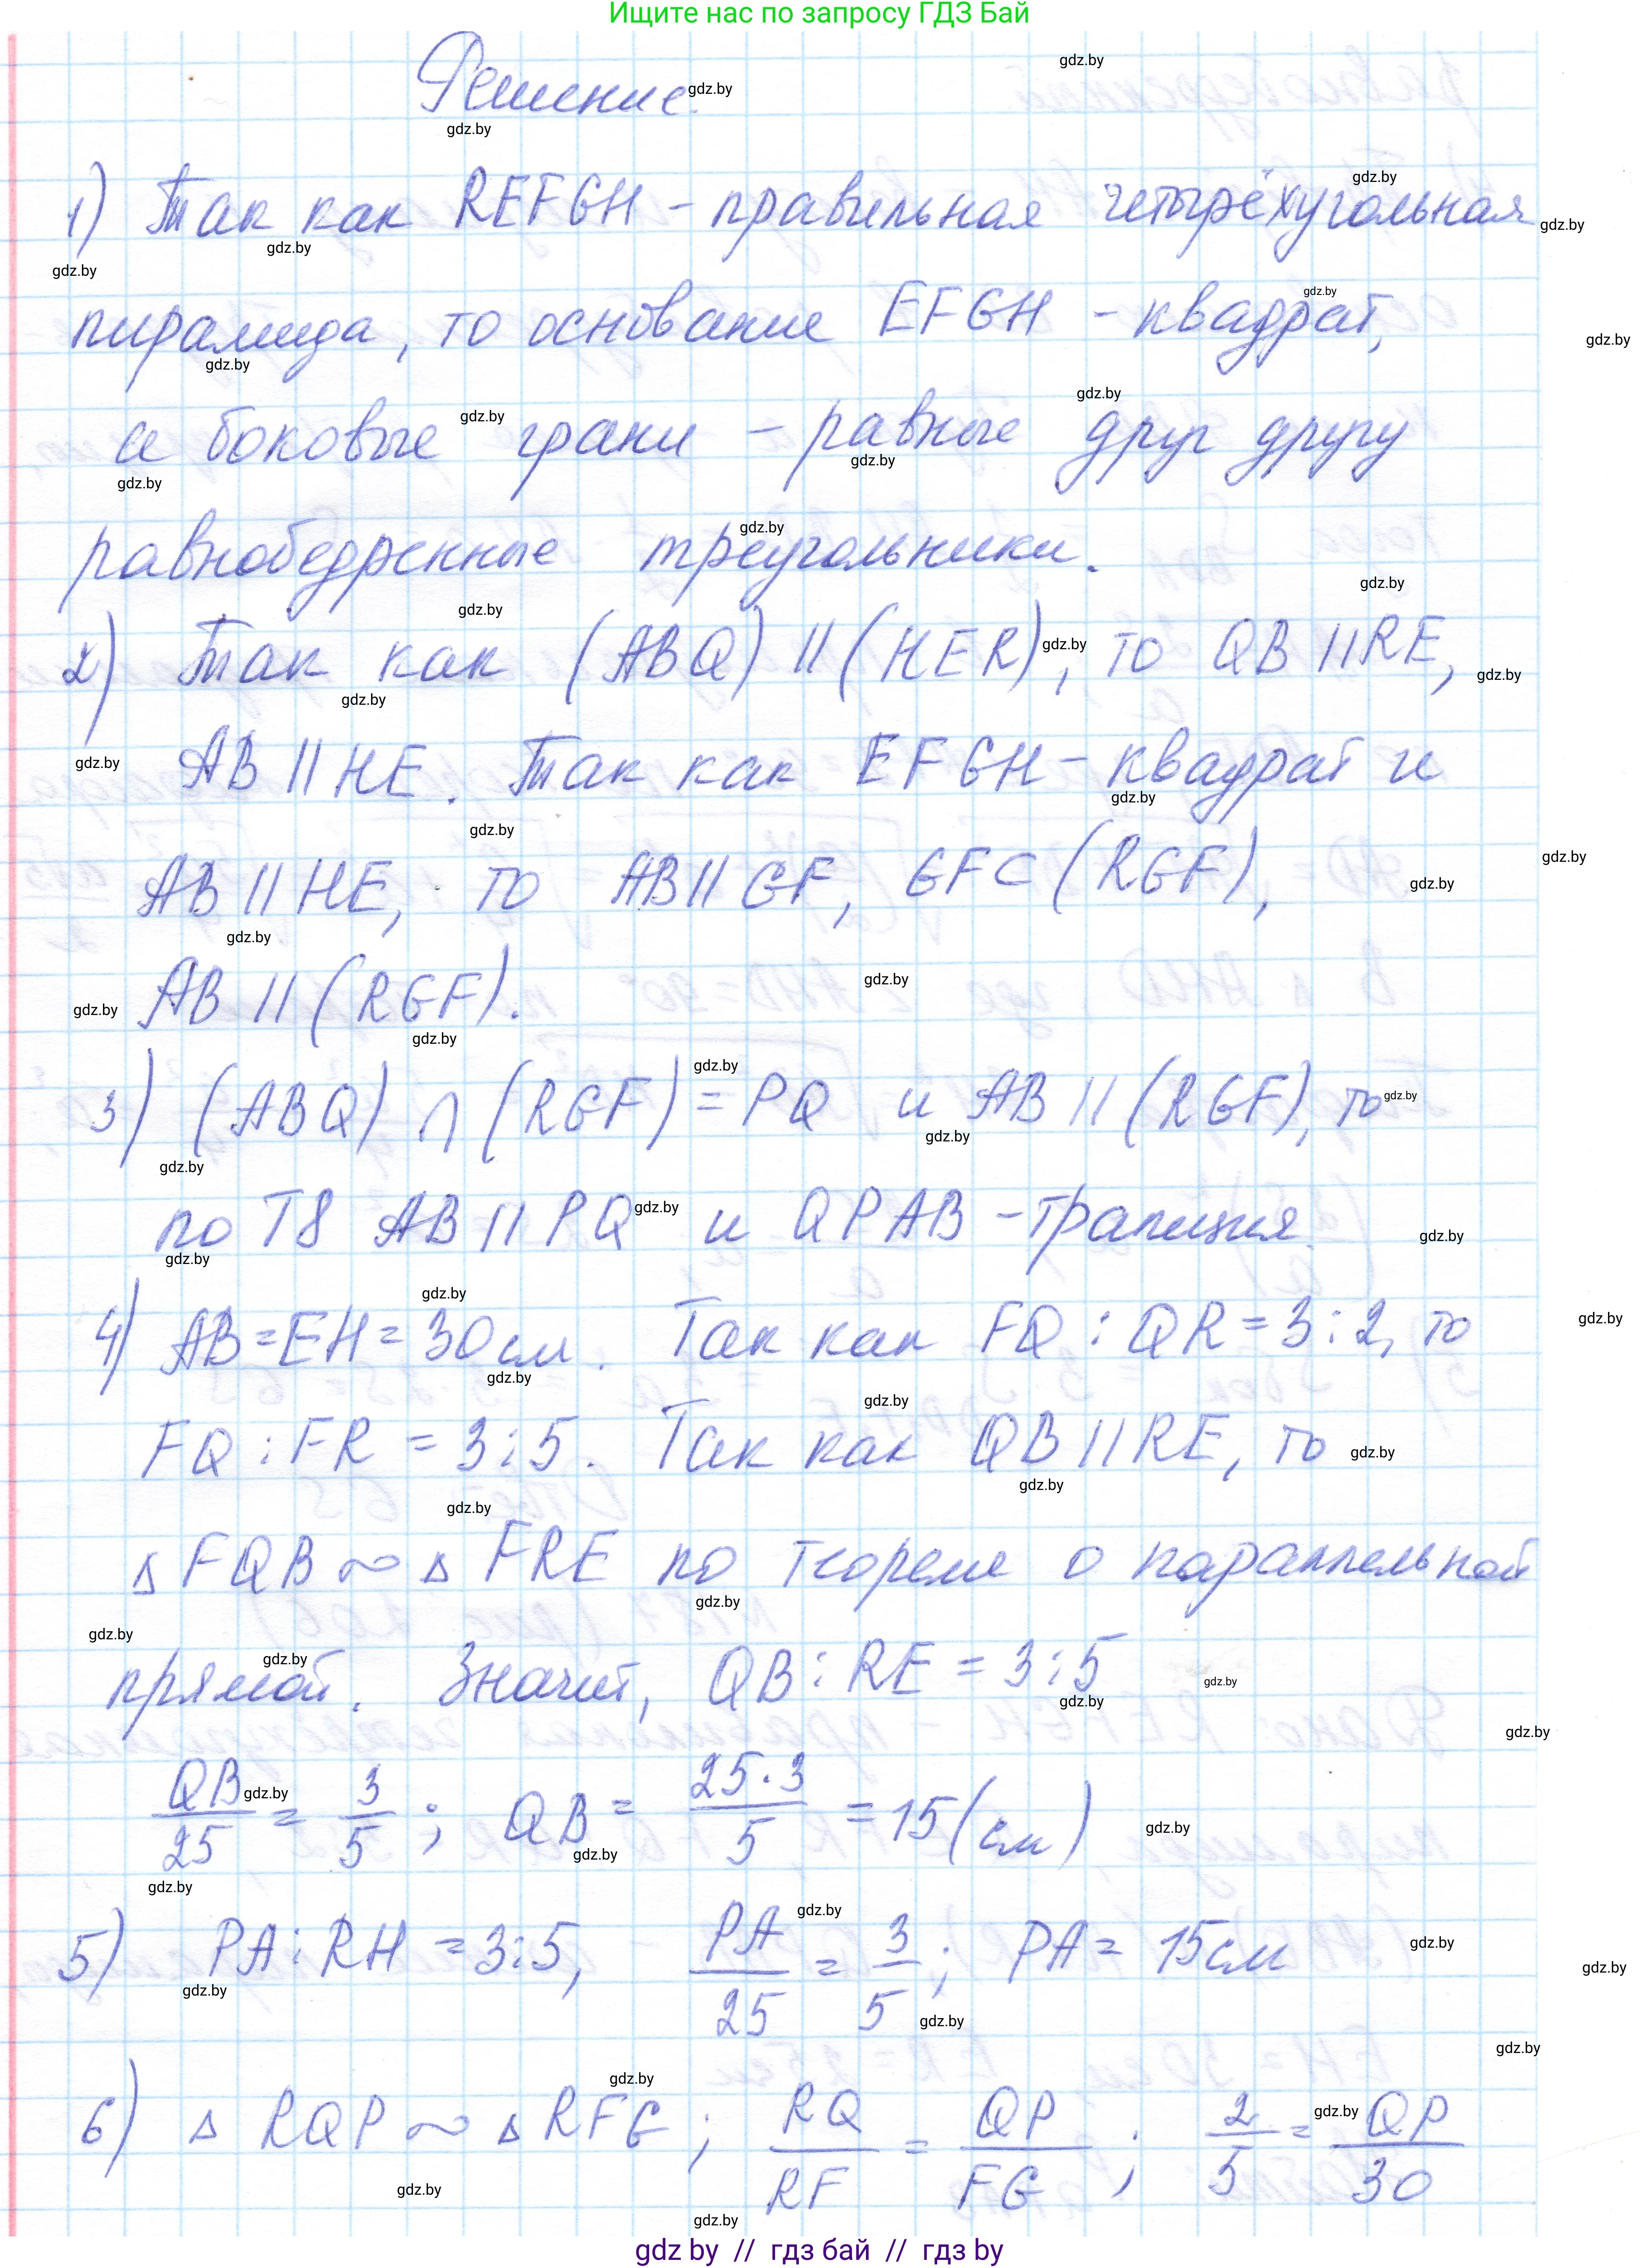 Ищите нас по запросу ГДЗ Бай
Решение.
1) Так как REFGH - правильная четырёхугольная
пирамида, то основание EFGH - квадрат,
а боковые грани - равные друг другу
равнобедренные треугольники.
2) Так как (ABQ) || (HER), то QB || RE,
AB || HE. Так как EFGH - квадрат и
AB || HE, то AB || GF, GF ⊂ (RGF),
AB || (RGF).
3) (ABQ) ∩ (RGF) = PQ и AB || (RGF), то
по Т8 AB || PQ и QPAB - трапеция.
4) AB = EH = 30 см. Так как FQ : QR = 3 : 2, то
FQ : FR = 3 : 5. Так как QB || RE, то
△ FQB ∾ △ FRE по теореме о параллельной
прямой. Значит, QB : RE = 3 : 5
QB/25 = 3/5 ; QB = 25·3/5 = 15 (см)
5) PA : RH = 3 : 5, PA/25 = 3/5 ; PA = 15 см
6) △ RQP ∾ △ RFG ; RQ/RF = QP/FG ; 2/5 = QP/30
gdz by // гдз бай // гдз by